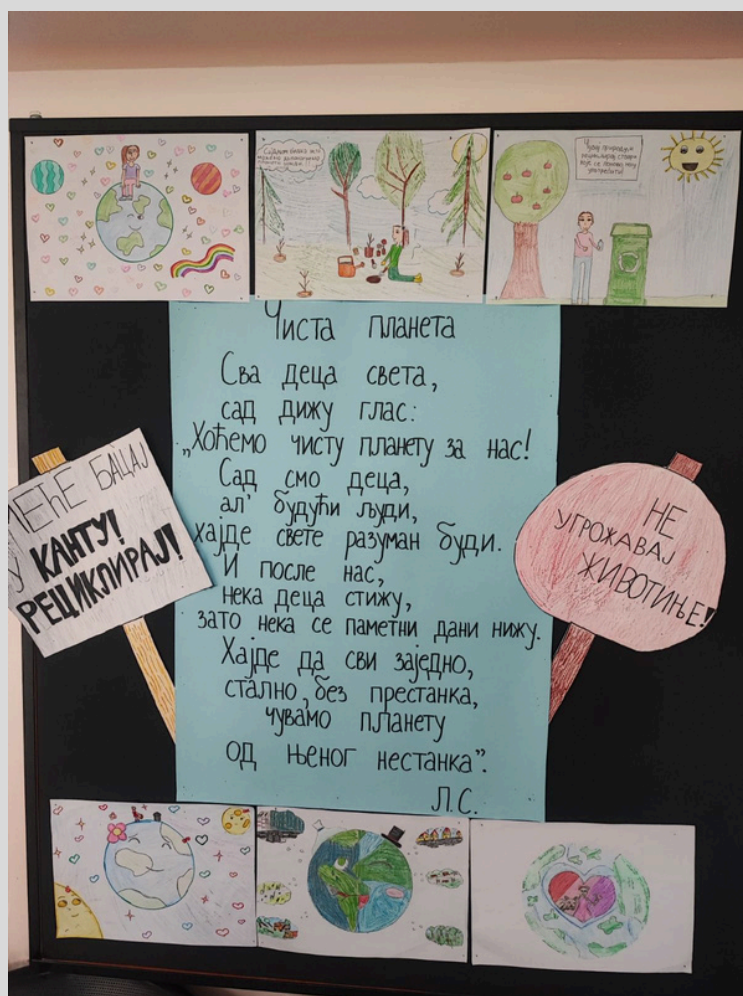 Чувај природу и
рециклирај ствари
које се поново могу
употребити!
Чиста планета
Сва деца света,
сад дижу глас:
„Хоћемо чисту планету за нас!
Сад смо деца,
ал' будући људи,
хајде свете разуман буди.
И после нас,
нека деца стижу,
зато нека се паметни дани нижу.
Хајде да сви заједно,
стално, без престанка,
чувамо планету
од њеног нестанка”.
Л.С.
БАЦАЈ
У КАНТУ!
РЕЦИКЛИРАЈ!
НЕ
УГРОЖАВАЈ
ЖИВОТИЊЕ!